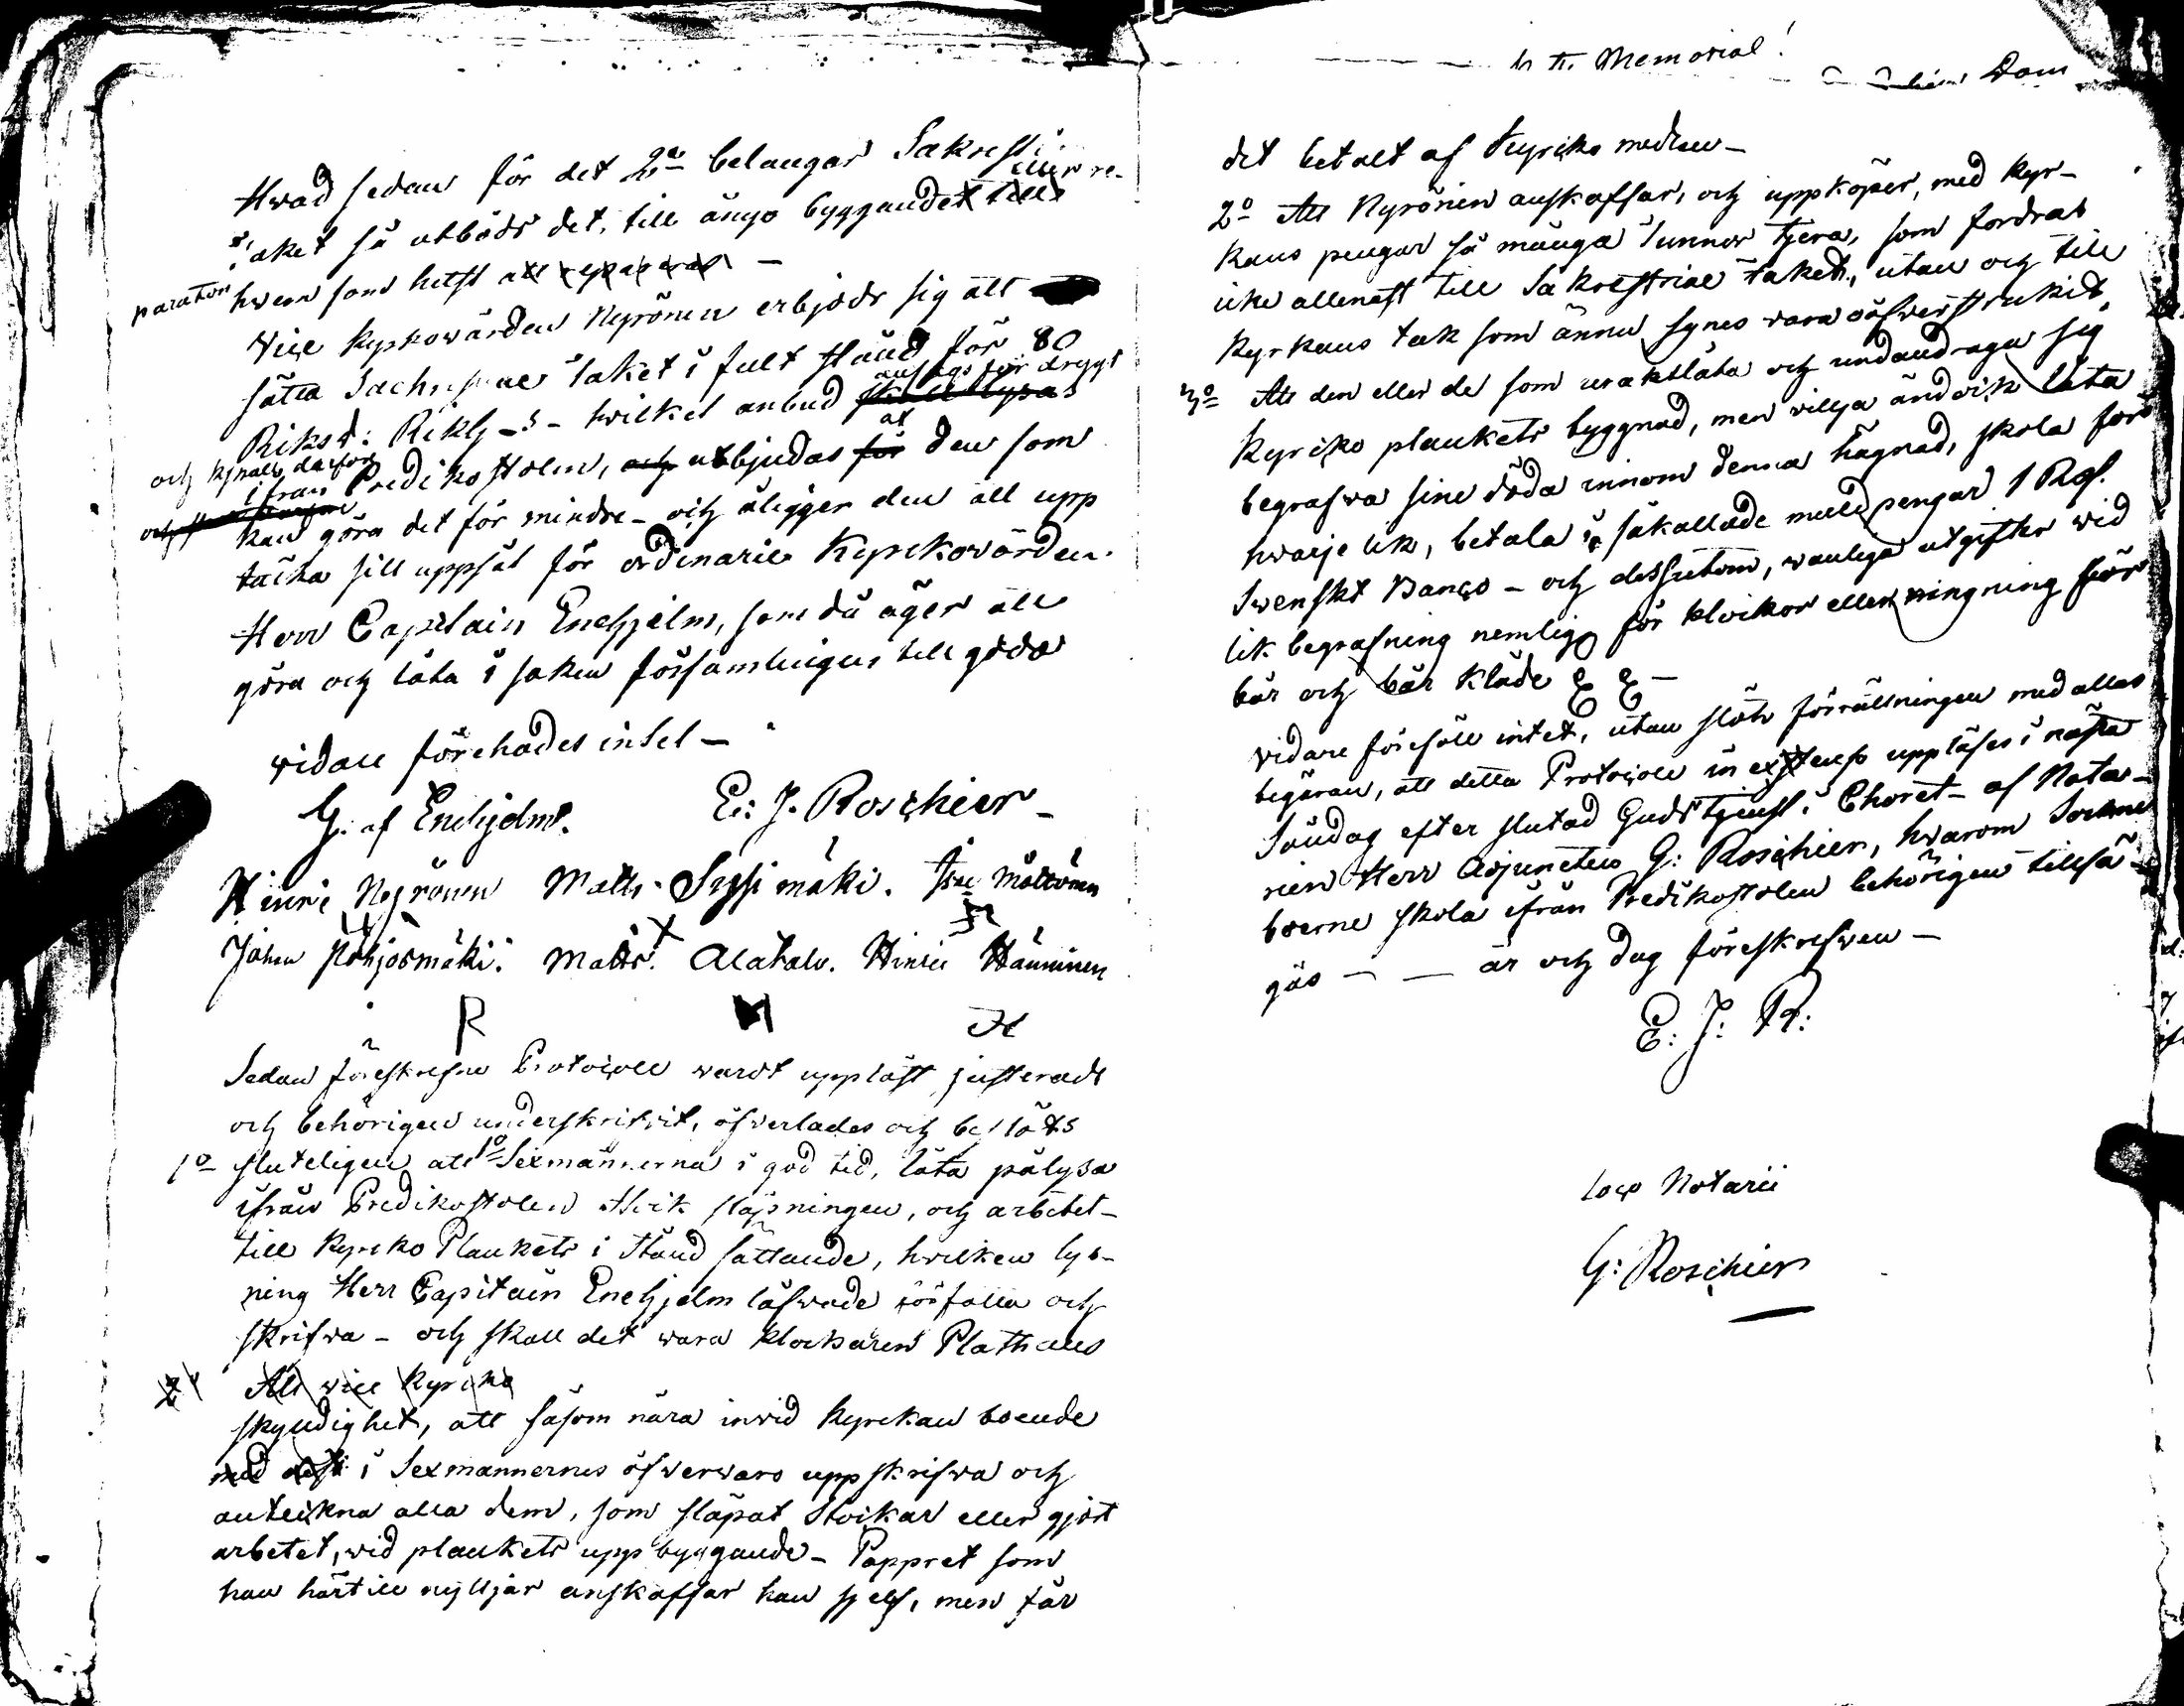 Hwad sedan för det 2a belangar Sakresti
taket så utböds det, till ånyo byggandet eller re-
paration hwem som helst att reparera -
Vice Kyrkowärden Nyrönen erbjöds sig att
sätta Sachristiae taket i fult stånd för 80
Riksd: Rikg - s - hwilket anbud skall lysas ansågs för drygt
och kjnall därför ifrån Predikostolen, och utbjudas för at den som
kan göra det för mindre - och åligger den att upp
täcka sitt uppsåt för ordinarie Kyrckovärden
Herr Capitain Enehjelm, som då äger att
göra och låta i saken församlingen till godo
vidare förehades intet -
G. af Enehjelm. E: J. Roschier -
Hinric Nyrönen Matts Syssimäki. Isac Möttönen
Johan Pohjosmäki. Matts Alatalo. Hinric Hänninen
R M H
Sedan föreskrefne Protocoll wardt uppläst justeradt
och behörigen underskrifvit, öfverlades och beslöts
1o sluteligen att 1o Sexmännerna i god tid, låta pålysa
ifrån Predikostolen Stock släpningen, och arbetet
till Kyrcko Plankets i stånd sättande, hvilken lys-
ning Herr Capitain Enehjelm låfwade författa och
skrifva - och skall det wara klockaren Plathans
2o Att vice Kyrcko
skyndighet, att såsom nära invid Kyrckan boende
med i Sexmannernes öfvervaro uppskrifva och
anteckna alla dem, som släpat Stockar eller gjort
arbetet, wid plankets uppbyggande - Pappret som
han härtill nyttjar anskaffar han sjelf, men får
Memorial!
Dom
det betalt af Kyrcko medlen -
2o Att Nyrönen anskaffar, och uppköper, med Kyr-
kans pengar så många Tunnor Tjera, som fordras
icke allenast till Sakrestriae taket, utan och till
Kyrkans tak som ännu synes vara oöfwerstrukit
3o Att den eller de som uraktlåta och undandraga sig
Kyrcko plankets byggnad, men vilja ändock låta
begrafwa sine döda innom denna hägnad, skola för
hwarje lik, betala i så kallade mull pengar 1 Rdf.
Swenskt Banco - och dessutom, wanliga utgifter wid
lik begrafning nemlig för klockor eller ringning för
bår och bår kläde &c &c -
vidare föreföll intet, utan slöts förrättningen med allas
begäran, att detta Protocoll in extenso uppläses i nästa
Söndag efter slutad Gudstjenst i Choret - af Nota-
rien Herr Adjuncten G: Roschier, hwarom Sockne
boerne skola ifrån Predikostolen behörigen tillsä-
gas - - år och dag föreskrefwen -
E: J: R:
loco Notarii
G: Roschier